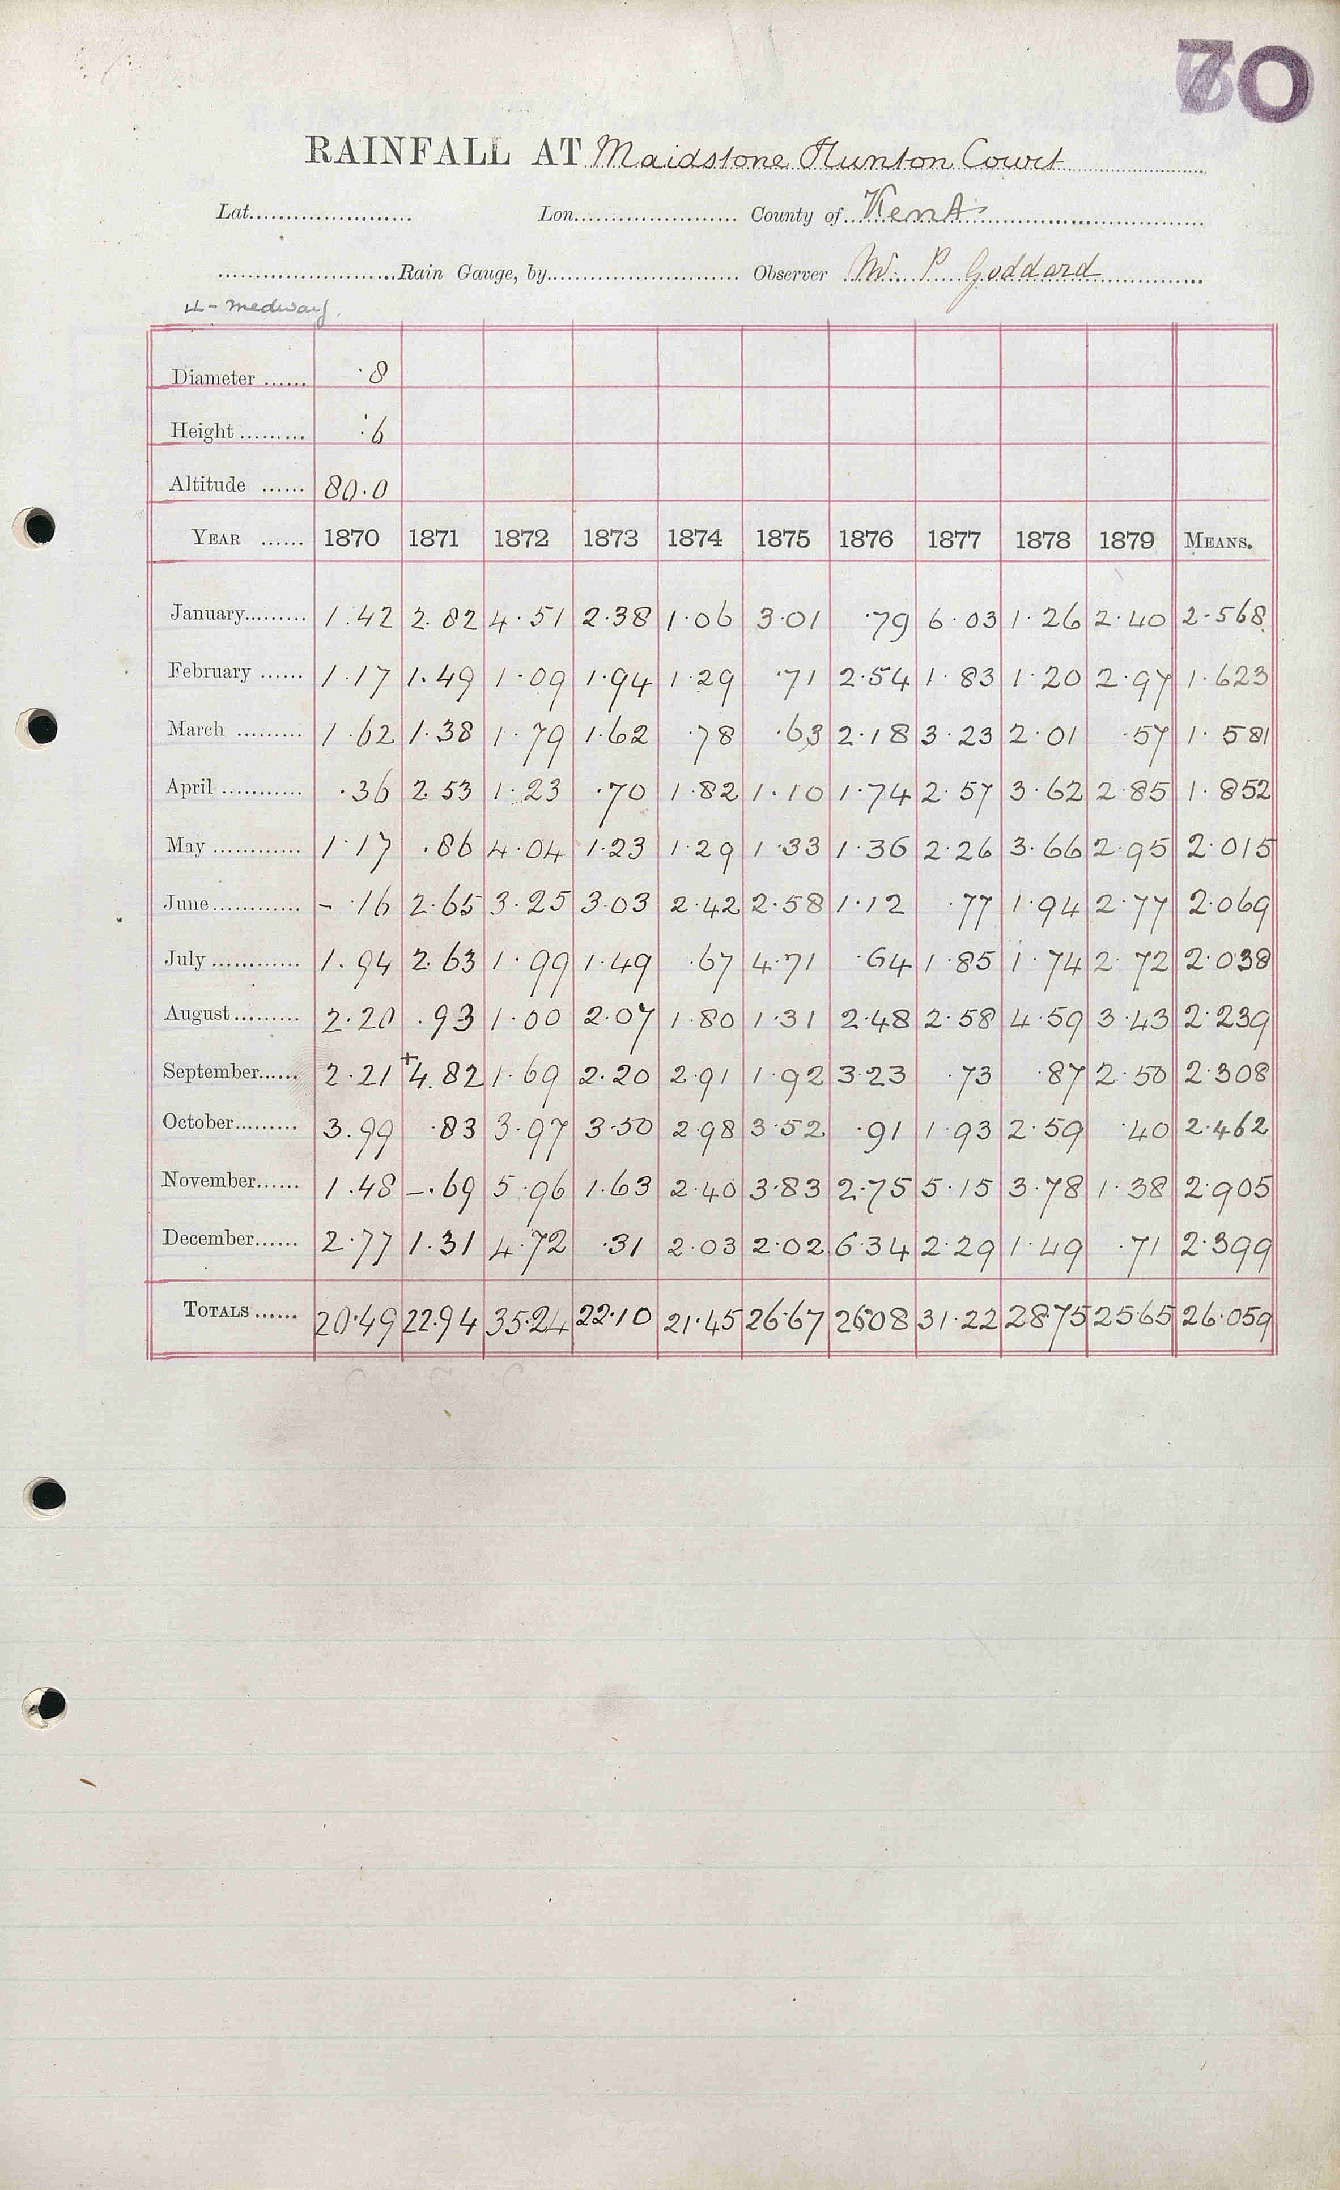 70
RAINFALL AT Maidstone Hunton Court
Lat...................... Lon....................... County of Kent
.........................Rain Gauge, by.......................... Observer W. P Goddard
Medway.
Diameter ...... ·8
Height ......... ·6
Altitude ...... 80·0
YEAR ...... 1870 1871 1872 1873 1874 1875 1876 1877 1878 1879 MEANS.
January......... 1·42 2·82 4·51 2·38 1·06 3·01 ·79 6·03 1·26 2·40 2·568
February ...... 1·17 1·49 1·09 1·94 1·29 ·71 2·54 1·83 1·20 2·97 1·623
March ......... 1·62 1·38 1·79 1·62 ·78 ·63 2·18 3·23 2·01 ·57 1·581
April ........... ·36 2·53 1·23 ·70 1·82 1·10 1·74 2·57 3·62 2·85 1·852
May ............ 1·17 ·86 4·04 1·23 1·29 1·33 1·36 2·26 3·66 2·95 2·015
June............ – ·16 2·65 3·25 3·03 2·42 2·58 1·12 ·77 1·94 2·77 2·069
July ............ 1·94 2·63 1·99 1·49 ·67 4·71 ·64 1·85 1·74 2·72 2·038
August ......... 2·20 ·93 1·00 2·07 1·80 1·31 2·48 2·58 4·59 3·43 2·239
September...... 2·21 +4·82 1·69 2·20 2·91 1·92 3·23 ·73 ·87 2·50 2·308
October......... 3·99 ·83 3·97 3·50 2·98 3·52 ·91 1·93 2·59 ·40 2·462
November...... 1·48 –·69 5·96 1·63 2·40 3·83 2·75 5·15 3·78 1·38 2·905
December...... 2·77 1·31 4·72 ·31 2·03 2·02 6·34 2·29 1·49 ·71 2·399
TOTALS ...... 20·49 22·94 35·24 22·10 21·45 26·67 26·08 31·22 28·75 25·65 26·059